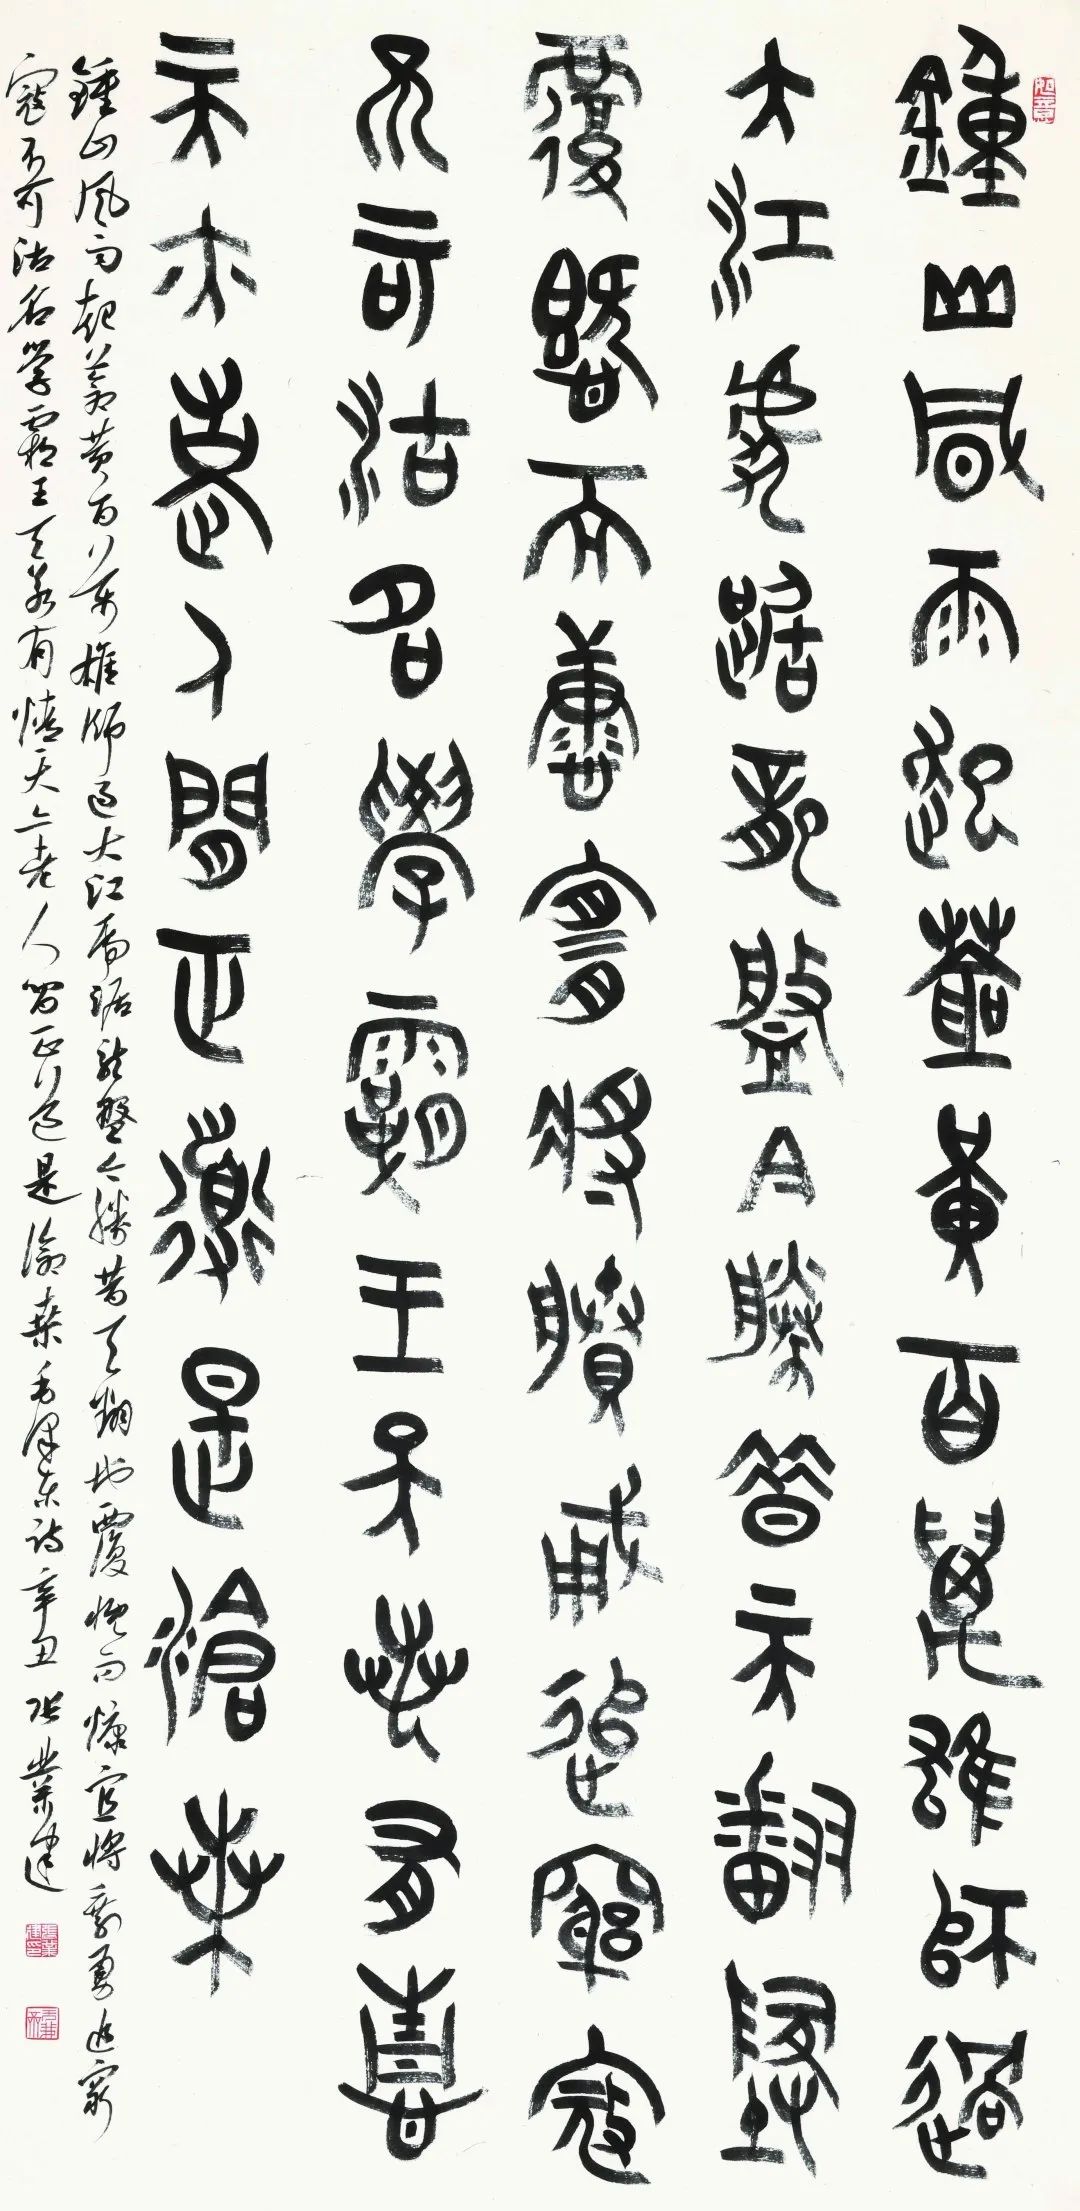 鍾山風雨起蒼黃百萬雄師過
大江虎踞龍盤今勝昔天翻地
覆慨而慷宜將賸勇追窮寇
不可沽名學霸王天若有情
天亦老人間正道是滄桑
鍾山風雨起蒼黃百万雄師過大江虎踞龍盤今勝昔天翻地覆慨而慷宜將剩勇追窮
寇不可沽名學霸王天若有情天亦老人間正道是滄桑毛澤東詩辛丑張業建